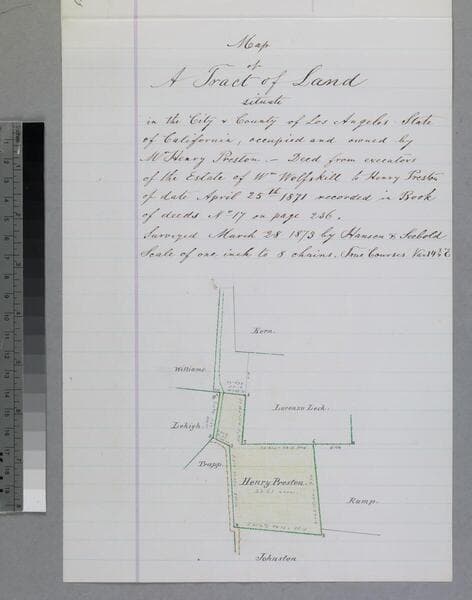 Map
of
A Tract of Land
situate
in the City & County of Los Angeles State
of California, occupied and owned by
Mr Henry Preston. — Deed from executors
of the Estate of Wm Wolfskill to Henry Preston
of date April 25th 1871 recorded in Book
of deeds No 17 on page 236.
Surveyed March 28 1873 by Hansen & Seebold
Scale of one inch to 8 chains. True Courses. Var 14½ E
Kern.
Williams.
Lorenzo Leck.
Lehigh.
Trapp.
Henry Preston.
Rump.
Johnston